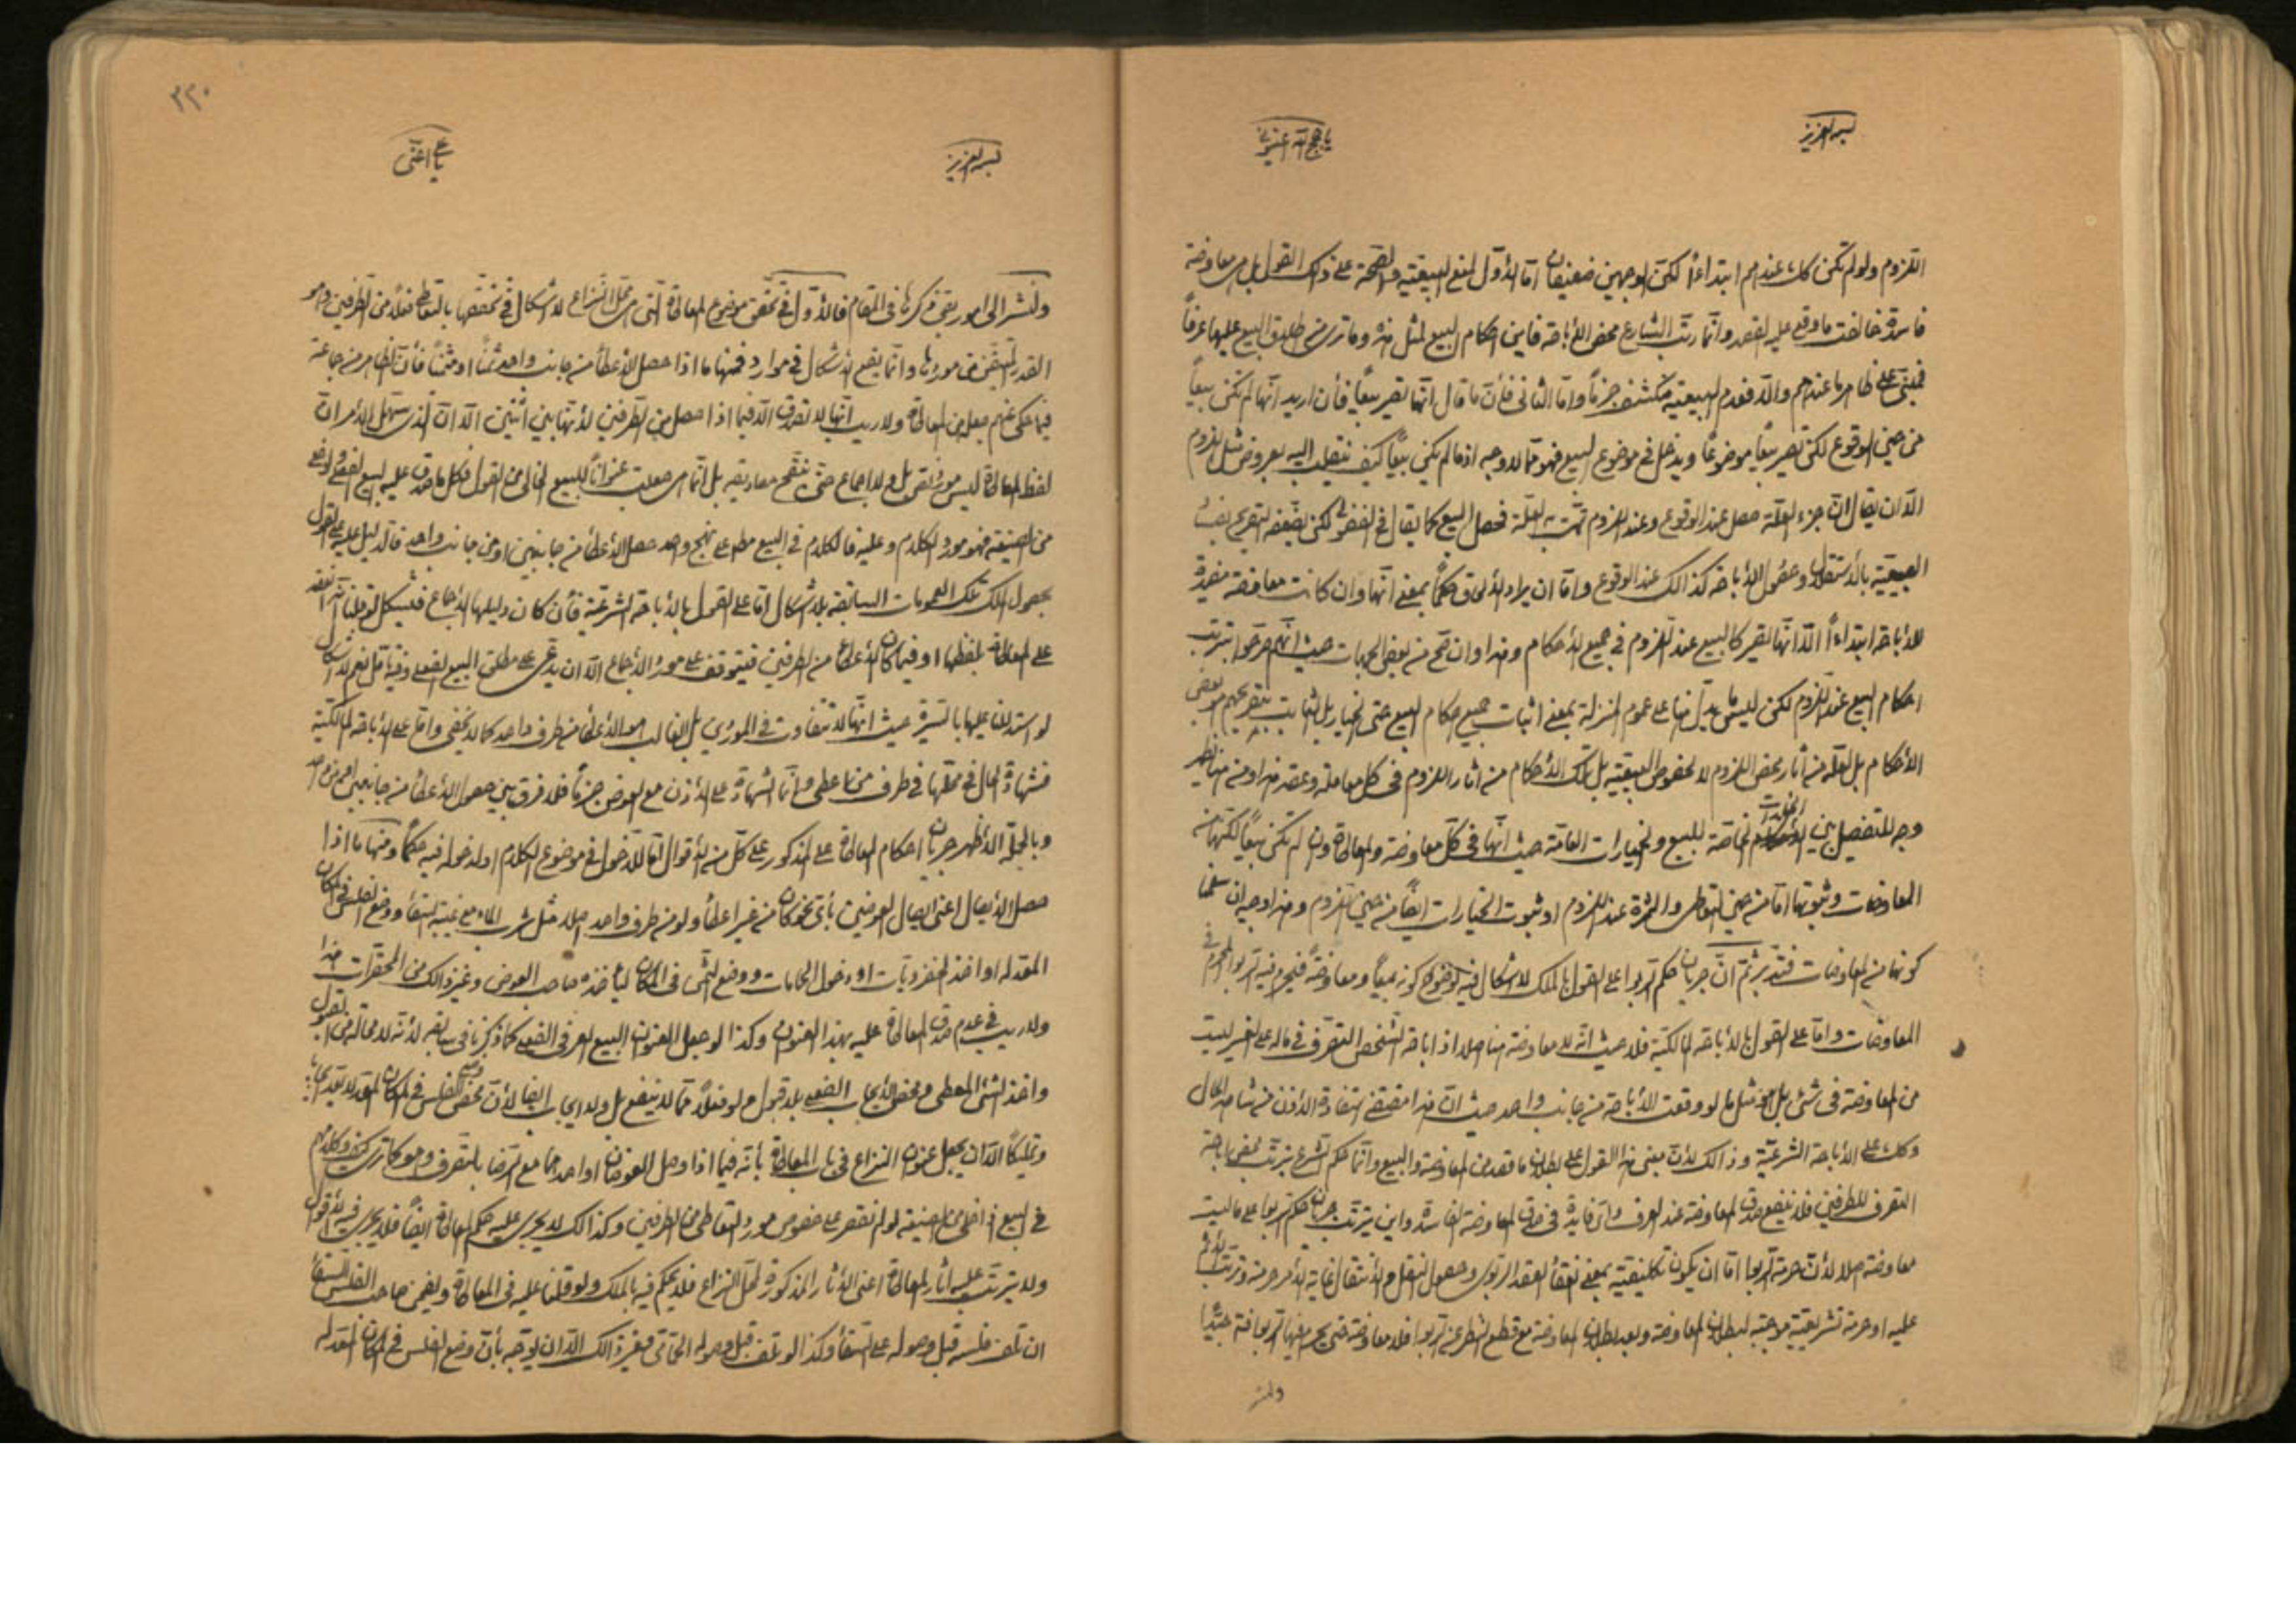 بسمه العزيز
يا حجج الله اغيثوني
اللزوم ولو لم تكن كك عندهم ابتداءً لكن الوجهين ضعيفان امّا الأوّل لمنع البيعيّة والصّحة على ذلك القول بل هى معاوضة
فاسدة خالفت ما وقع عليه القصد وانّما رتّب الشارع محض الأباحة فاين احكام البيع لمثل هذه وما ترى من اطلاق البيع عليها عرفاً
فمبنىّ على ظاهر ما عندهم والّا فعدم البيعيّة منكشف جزماً وامّا الثانى فلأنّ ما قال انّها تصير بيعاً فأن اريد انّها لم تكن بيعاً
من حين الوقوع لكن تصير بيعاً موضوعاً ويدخل فى موضوع البيع فهو ممّا لا وجه له اذ ما لم يكن بيعاً كيف ينقلب اليه بعروض مثل اللزوم
الّا ان يقال انّ جزء العلّة حصل عند الوقوع وعند اللزوم تمّت العلّة فحصل البيع كما يقال فى الفضولى لكن يضعّفه التصريح
البيعيّة بالأستقلال وحصول الأباحة كذالك عند الوقوع وامّا ان يراد اللحوق حكماً بمعنى انّها وان كانت معاوضة مفيدة
للأباحة ابتداءً الّا انّها تصير كالبيع عند اللزوم فى جميع الأحكام وهذا وان صحّ من بعض الجهات حيث انّهم صرّحوا بترتب
احكام البيع عند اللزوم لكن ليس ما يدلّ منها على عموم المنزلة بمعنى اثبات جميع احكام البيع حتى الخيار بل الثابت بتصريحهم بعض
الأحكام بل لعلّه من آثار محض اللزوم لا لخصوص البيعيّة بل تلك الأحكام من اثار اللزوم فى كل معاملة وعقد هذا ومنه يظهر
وجه للتفصيل بين الخيارات الخاصّة للبيع والخيارات العامّة حيث انّها فى كلّ معاوضة والمعاطاة وان لم تكن بيعاً لكنّها من
المعاوضات وثبوتها امّا من حين التعاطى والثمرة عند اللزوم او ثبوت الخيارات ايضاً من حين اللزوم وهذا وجيه ان سلّمنا
كونها من المعاوضات فتدبّر ثمّ انّ جريان حكم الربوا على القول بالملك لا اشكال فيه لوضوح كونه بيعاً ومعاوضةً فيجرى فيه الربوا المحرّم فى
المعاوضات وامّا على القول بالأباحة المالكيّة فلا حيث انّه لا معاوضة هنا اصلا اذ اباحة الشخص التصرّف فى ماله على الغير ليست
من المعاوضة فى شئ بل هو مثل ما لو وقعت الأباحة من جانب واحد حيث انّ هذا مقتضى استفادة الأذن من شاهد الحال
وكك على الأباحة الشرعيّة وذالك لأنّ مبنى هذا القول على بطلان ما قصد من المعاوضة والبيع وانّما حكم الشرع بترتّب محض اباحة
التصرف للطرفين فلا ينفع صدق المعاوضة عند العرف واىّ فايدة فى صدق المعاوضة الفاسدة واين يترتّب جريان حكم الربوا على ما ليست
معاوضة اصلا لأنّ حرمة الربوا امّا ان يكون تكليفيّة بمعنى انعقاد العقد الربوى وحصول النقل والأنتقال غاية الأمر حرمته وترتب الأثم
عليه او حرمة تشريعيّة موجبة لبطلان المعاوضة وبعد بطلان المعاوضة مع قطع النظر عن الربوا فلا معاوضة حتى يجرى فيها الربوا
بسمه العزيز
يا على اغثنى
٢٢٠
ولنشر الى امور بقى ذكرها فى المقام فالأوّل فى تحقق موضوع المعاطاة التى هى محلّ النزاع لا اشكال فى تحققها بالتعاطى فعلاً من الطرفين وهو
القدر المتيقن من موردها وانّما يقع الأشكال فى موارد فمنها ما اذا حصل الأعطاء من جانب واحد ثمناً او مثمناً فأنّ الظاهر من جماعة
فيما حكى عنهم جعله من المعاطاة ولا ريب انّها لا تصدق الّا فيما اذا حصل من الطرفين لأنّها بين اثنين الّا انّ الذى يسهّل الأمر انّ
لفظ المعاطاة ليس مورد نصّ بل ولا اجماع حتى ينقّح مصاديقه بل انّما هى جعلت عنواناً للبيع الخالى من القول فكل ما صدق عليه البيع الفعلى والخلى
من الصيغة فهو مورد الكلام وعليه فالكلام فى البيع مطلقا على نهج واحد حصل الأعطاء من جانبين او من جانب واحد فالدليل عليه على القول
بحصول الملك تلك العمومات السابقة بلا اشكال امّا على القول بالأباحة الشرعيّة فأن كان دليلها الأجماع فيشكل لو قلنا انّه انعقد
على المعاطاة بلفظها او فيما كان الأعطاء من الطرفين فيتوقف على مورد الأجماع الّا ان يدّعى على مطلق البيع الفعلى وفيه تأمّل نعم لا اشكال
لو استدللنا عليها بالسّيرة حيث انّها لا تتفاوت فى الموردين بل الغالب هو الأعطاء من طرف واحد كما لا يخفى وامّا على الأباحة المالكيّة
فشهادة الحال فى محلّها فى طرف من اعطى وانّما الشهادة على الأذن مع العوض جزماً فلا فرق بين حصول الأعطاء من جانبين او من واحد
وبالجملة الأظهر جريان احكام المعاطاة على المذكور على كلّ من الأقوال امّا للدخول فى موضوع الكلام او لدخوله فيه حكماً ومنها ما اذا
حصل الأيصال اعنى ايصال العوضين بأىّ نحو كان من غير اعطاء ولو من طرف واحد اصلا مثل شرب الماء مع غيبة السّقاء ووضع الفلس فى المكان
المعدّ له او اخذ المخضرويات او دخول الحمامات ووضع الشئ فى المكان ليأخذه صاحب العوض وغير ذالك من المحقرات هذا
ولا ريب فى عدم صدق المعاطاة عليه بهذا العنوان وكذا لو جعل العنوان البيع العرفى الفعلى كما ذكرنا فى سابقه لأنّه لا محالة من القبول
واخذ الشئ المعطى ومحض الأيجاب الفعلى بلا قبول ولو فعلاً ممّا لا ينفع بل ولا ايجاب ايضا لأنّ محض وضع الفلس فى المكان المعدّ لا يعدّ ايجاباً
وتمليكاً الّا ان يجعل عنوان النزاع فى باب المعاطاة بأنّه فيما اذا وصل العوضان او احدهما مع الرّضا بالتصرف وهو كما ترى
فى البيع الخالى من الصيغة لو لم نقتصر على خصوص مورد التعاطى من الطرفين وكذالك لا يجرى عليه حكم المعاطاة ايضاً فلا يجرى فيه الأقوال
ولا يترتّب عليه اثار المعاطاة اعنى الأثار المذكورة لمحلّ النزاع فلا يحكم فيه بالملك ولو قلنا عليه فى المعاطاة ويضمن صاحب الفلس للسّقاء
ان تلف فلسه قبل وصوله على السّقاء وكذا لو تلف قبل وصوله الى الحمّامى وغير ذالك الّا ان يوجّه بأنّ وضع الفلس فى المكان المعدّ له